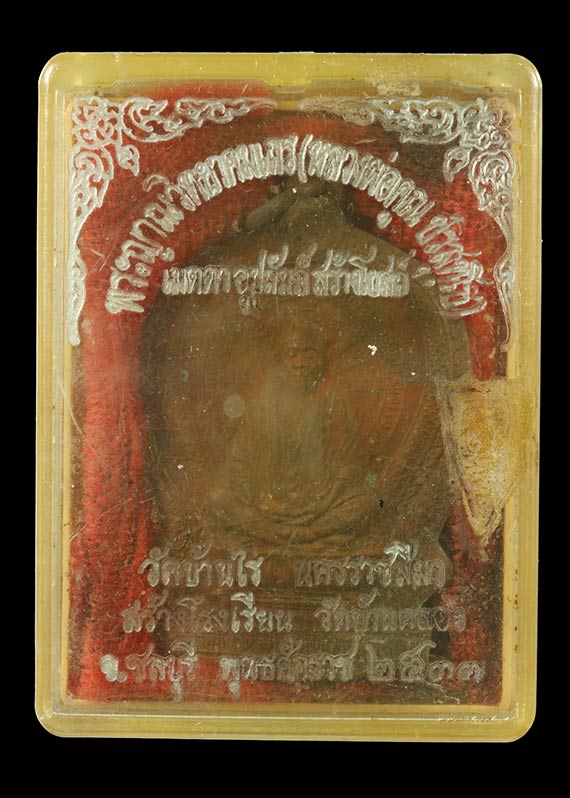 พระญาณวิทยาคมเถร (หลวงพ่อคูณ ปริสุทโธ)
เมตตาอุปถัมภ์ สร้าง
วัดบ้านไร่ นครราชสีมา
สร้างโรงเรียน วัดบ้านคลอง
จ.ชลบุรี พุทธศักราช ๒๕๓๓